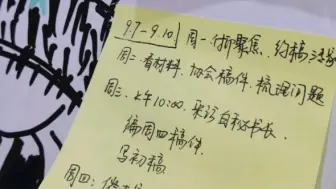 9.7-9.10 周一.付印聚焦、约稿
周二.看材料、协会稿件、梳理问题
周三.上午10:00.采访自秘书长、
编周四稿件.
写初稿
周四: